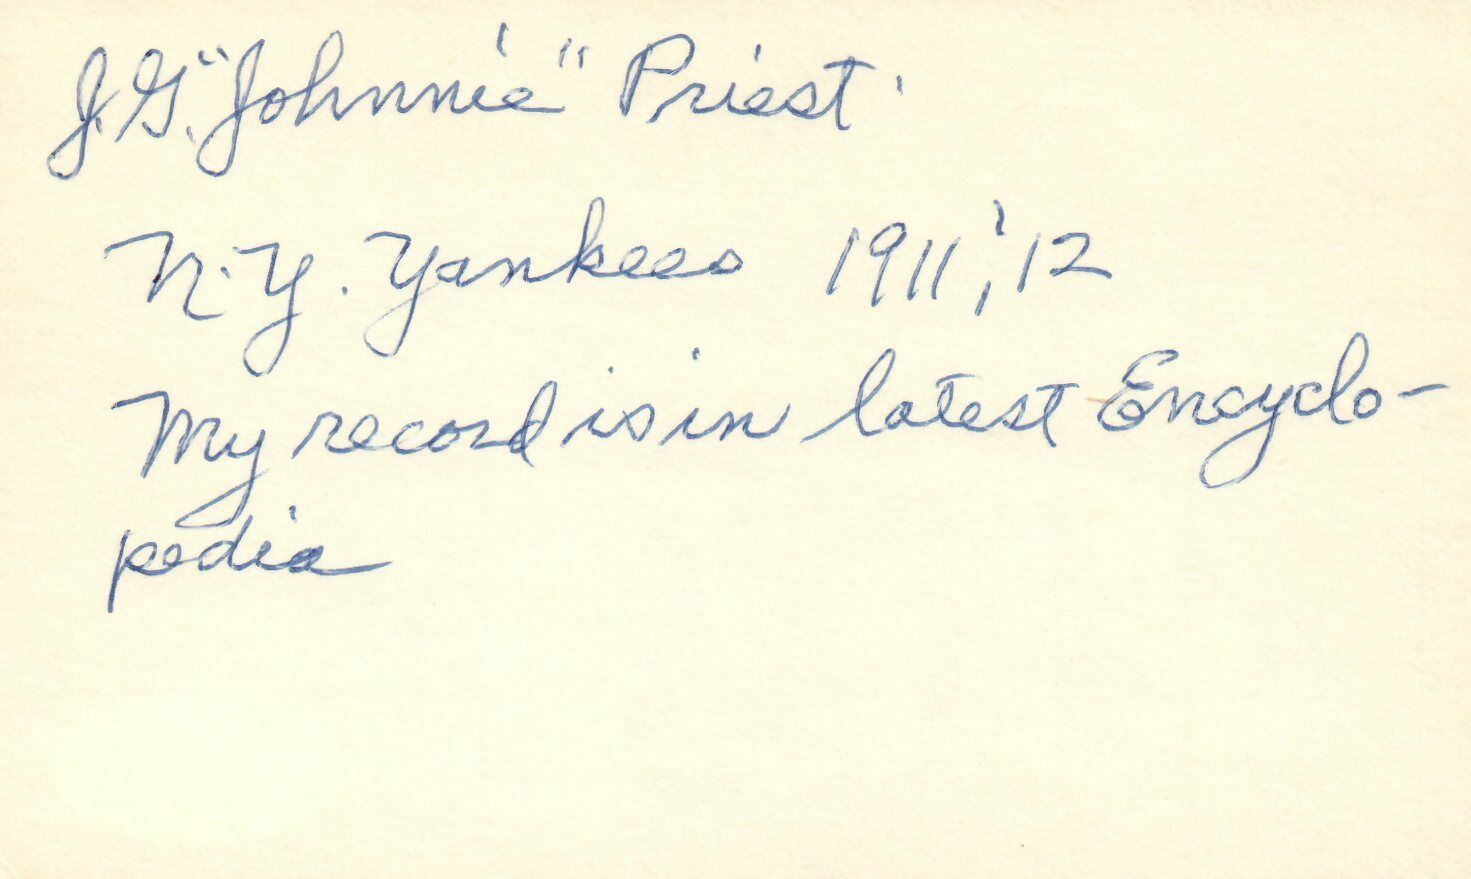 J.G. "Johnnie" Priest.
N.Y. Yankees 1911, '12
My record is in latest Encyclo-
pedia